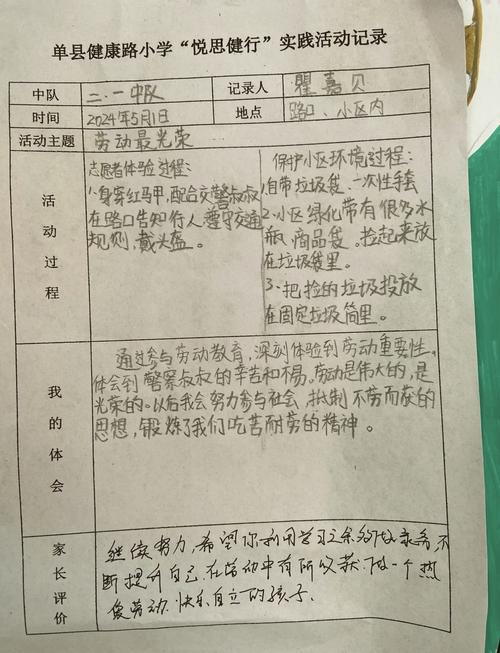 单县健康路小学“悦思健行”实践活动记录
中队 二.一中队 记录人 瞿嘉贝
时间 2024年5月1日 地点 路口、小区内
活动主题 劳动最光荣
活动过程
志愿者体验过程:
1.身穿红马甲,配合交警叔叔
在路口告知行人遵守交通
规则、戴头盔。
保护小区环境过程:
1.自带垃圾袋、一次性手套
2.小区绿化带有很多水
瓶、商品袋。捡起来放
在垃圾袋里。
3、把捡的垃圾投放
在固定垃圾筒里。
我的体会
通过参与劳动教育,深刻体验到劳动重要性。
体会到警察叔叔的辛苦和不易。劳动是伟大的,是
光荣的。以后我会努力参与社会,抵制不劳而获的
思想,锻炼了我们吃苦耐劳的精神。
家长评价
继续努力,希望你利用学习之余多做家务,不
断提升自己.在劳动中有所收获.做一个热
爱劳动.快乐自立的孩子.